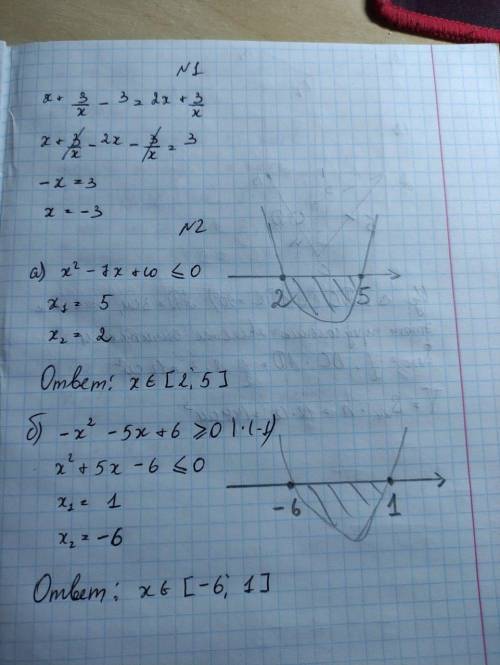 №1
x + 3/x - 3 = 2x + 3/x
x + 3/x - 2x - 3/x = 3
-x = 3
x = -3
№2
а) x² - 7x + 10 ≤ 0
x₁ = 5
x₂ = 2
2 5
Ответ: x ∈ [2; 5]
б) -x² - 5x + 6 ≥ 0 |·(-1)
x² + 5x - 6 ≤ 0
x₁ = 1
x₂ = -6
-6 1
Ответ: x ∈ [-6; 1]